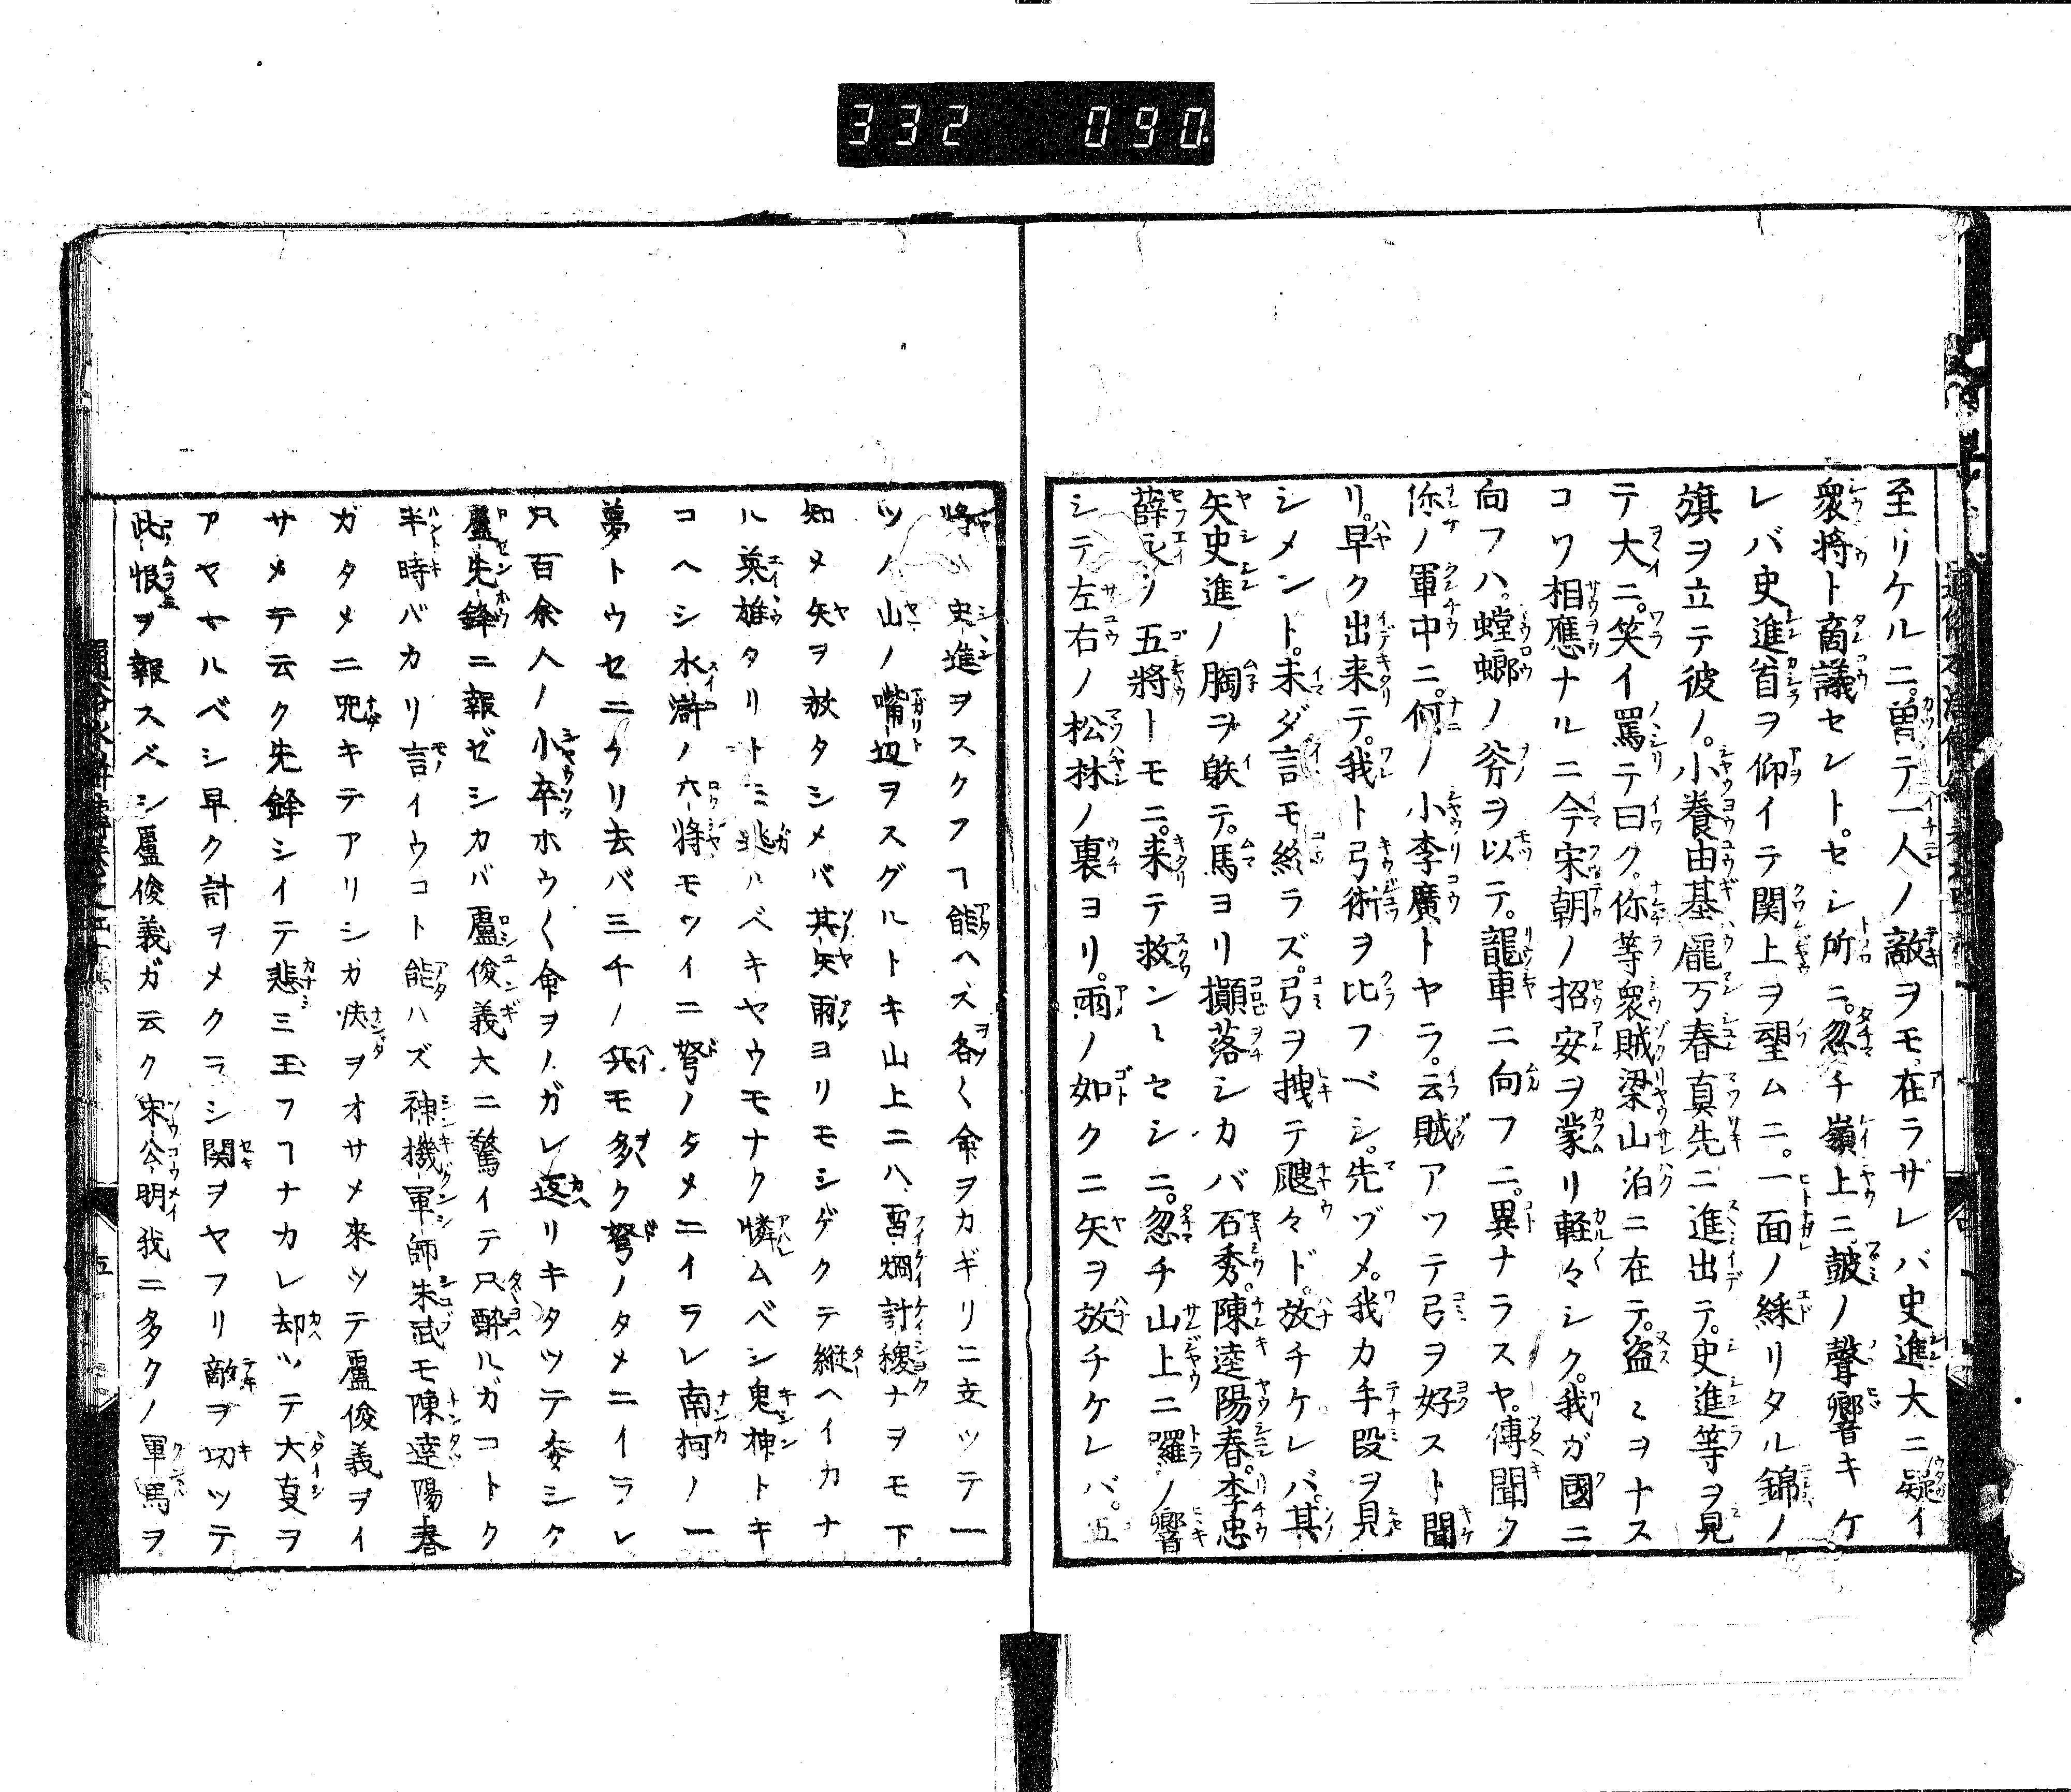 332 090.
至リケルニ。曽テ一人ノ敵ヲモ在ラザレバ史進大ニ疑イ
衆將ト商議セント。セシ所ニ。忽チ嶺上ニ皷ノ聲響キケ
レバ史進首ヲ仰イテ関上ヲ望ムニ。一面ノ綵リタル錦ノ
旗ヲ立テ彼ノ。小養由基龐万春真先ニ進出テ。史進等ヲ見
テ大ニ。笑イ罵テ曰ク。你等衆賊梁山泊ニ在テ。盗ミヲナス
コソ相應ナルニ今宋朝ノ招安ヲ蒙リ軽々シク。我ガ國ニ
向フハ。螳螂ノ斧ヲ以テ。龍車ニ向フニ。異ナラスヤ。傳聞ク
你ノ軍中ニ。何ノ小李廣トヤラ。云賊アツテ弓ヲ好スト聞
リ。早ク出来テ。我ト弓術ヲ比フベシ。先ヅメ。我カ手段ヲ見
シメント。未ダ言モ終ラズ。弓ヲ拽テ颼々ド。放チケレバ。其
矢史進ノ胸ヲ躾テ。馬ヨリ攧落シカバ石秀。陳逵陽春。李忠
薛永ノ五將トモニ。来テ救ントセシニ。忽チ山上ニ羅ノ響
シテ左右ノ松林ノ裏ヨリ。雨ノ如クニ矢ヲ放チケレバ。五
將ハ史進ヲスクフヿ能ヘス各〱命ヲカギリニ支ッテ一
ツノ山ノ嘴辺ヲスグルトキ山上ニハ雷炯計稷ナヲモ下
知メ矢ヲ放タシメバ其矢雨ヨリモシゲクテ縦ヘイカナ
ル英雄タリトミ逃ルベキヤウモナク憐ムベシ鬼神トキ
コヘシ水滸ノ六將モツイニ弩ノタメニイラレ南柯ノ一
夢トウセニケリ去バ三千ノ兵モ多ク弩ノタメニイラレ
只百余人ノ小卒ホウ〱命ヲノガレ返リキタツテ委シク
盧先鋒ニ報ゼシカバ盧俊義大ニ驚イテ只酔ルガコトク
半時バカリ言イウコト能ハズ神機軍師朱武モ陳逵陽春
ガタメニ咒キテアリシカ涙ヲオサメ来ツテ盧俊義ヲイ
サメテ云ク先鋒シイテ悲ミ玉フヿナカレ却ッテ大叓ヲ
アヤナルベシ早ク計ヲメクラシ関ヲヤフリ敵ヲ切ッテ
此恨ヲ報スベシ盧俊義ガ云ク宋公明我ニ多クノ軍馬ヲ
五